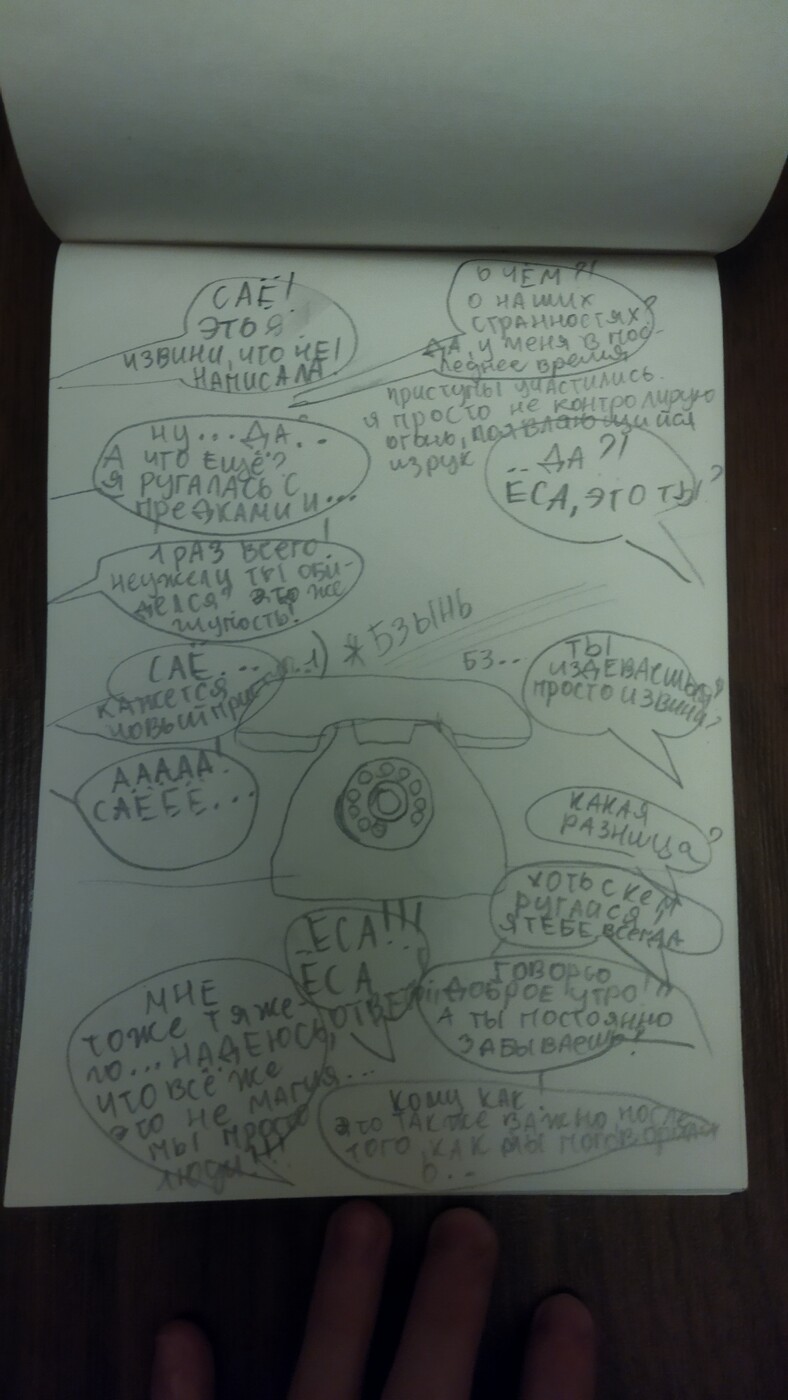 САЁ!
ЭТО Я.
ИЗВИНИ, ЧТО НЕ
НАПИСАЛА!
О ЧЁМ?!
О НАШИХ
СТРАННОСТЯХ?
ДА, У МЕНЯ В ПОС-
ЛЕДНЕЕ ВРЕМЯ
ПРИСТУПЫ УЧАСТИЛИСЬ.
Я ПРОСТО НЕ КОНТРОЛИРУЮ
ОГОНЬ, ПОЯВЛЯЮЩИЙСЯ
ИЗ РУК
НУ... ДА..
А ЧТО ЕЩЁ?
Я РУГАЛАСЬ С
ПРЕДКАМИ И...
.. ДА?!
ЁСА, ЭТО ТЫ?
1 РАЗ ВСЕГО!
НЕУЖЕЛИ ТЫ ОБИ-
ДЕЛСЯ? ЭТО ЖЕ
ГЛУПОСТЬ!
*БЗЫНЬ
БЗ...
ТЫ
ИЗДЕВАЕШЬСЯ?
ПРОСТО ИЗВИНИ?
САЁ...
КАЖЕТСЯ
НОВЫЙ
АААА!
САЁЁЁ...
КАКАЯ
РАЗНИЦА?
ХОТЬ С КЕМ
РУГАЙСЯ,
Я ТЕБЕ ВСЕГДА
ГОВОРЮ
ДОБРОЕ УТРО!
А ТЫ ПОСТОЯННО
ЗАБЫВАЕШЬ!
ЁСА!!!
ЁСА
МНЕ
ТОЖЕ ТЯЖЕ-
ЛО... НАДЕЮСЬ,
ЧТО ВСЁ ЖЕ
ЭТО НЕ МАГИЯ...
МЫ ПРОСТО
ЛЮДИ!!!
КОМУ КАК.
ЭТО ТАК ЖЕ ВАЖНО, ПОСЛЕ
ТОГО, КАК МЫ
О...